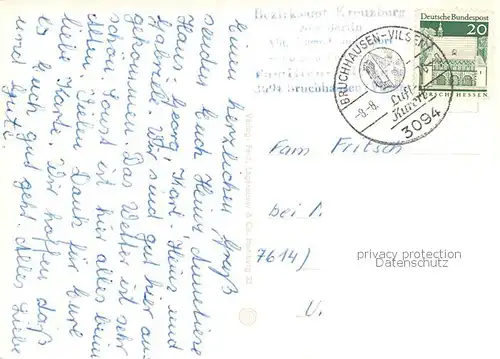 Einen herzlichen Gruß
senden Euch Heinz Anneliese
Hans-Georg, Karl-Heinz und
Gabriele. Wir sind gut hier an-
gekommen. Das Wetter ist sehr
schön. Sonst ist hier alles beim
Alten. Vielen Dank für Eure
liebe Karte. Wir hoffen daß
es Euch gut geht. Alles Liebe
und Gute.
Bezirksamt Kreuzberg
von Berlin
3094 Bruchhausen
BRUCHHAUSEN-VILSEN
Luft-
Kurort
-8.-8.
3094
Deutsche Bundespost
20
LORSCH/HESSEN
Fam Fritsch
bei P.
7614)
U.
privacy protection
Datenschutz